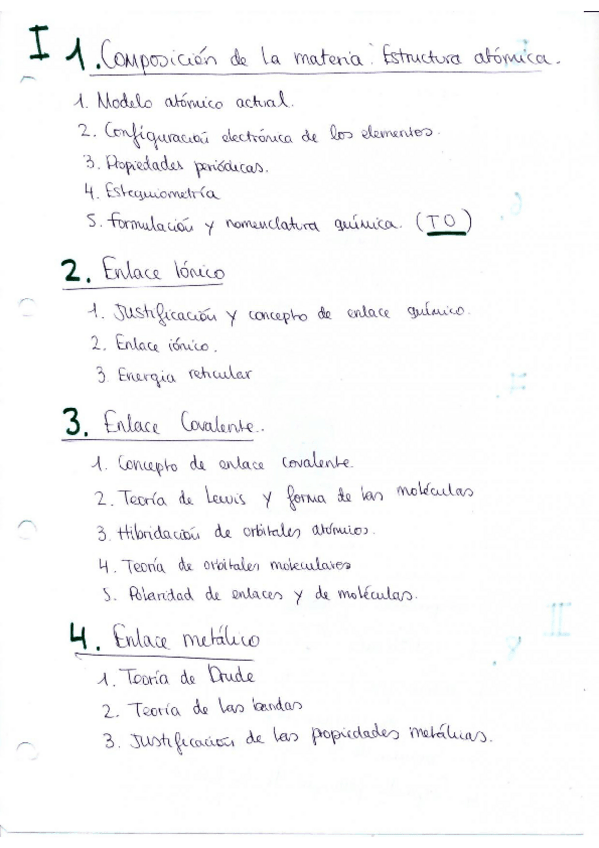 I 1. Composición de la materia: Estructura atómica.
1. Modelo atómico actual.
2. Configuración electrónica de los elementos.
3. Propiedades periódicas.
4. Estequiometría
5. Formulación y nomenclatura química. (TO)
2. Enlace Iónico
1. Justificación y concepto de enlace químico.
2. Enlace iónico.
3. Energia reticular
3. Enlace Covalente..
1. Concepto de enlace covalente.
2. Teoría de Lewis y forma de las moléculas
3. Hibridación de orbitales atómicos.
4. Teoría de orbitales moleculares
5. Polaridad de enlaces y de moléculas.
4. Enlace metálico
1. Teoría de Drude
2. Teoría de las bandas
3. Justificación de las propiedades metálicas.